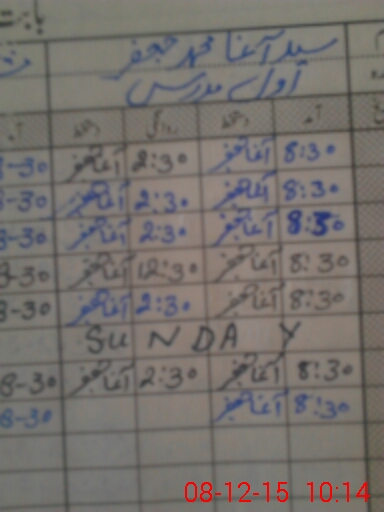 سید آغا محمد جعفر
اول مدرس
آمد دستخط روانگی دستخط
8:30 آغا جعفر 2:30 آغا جعفر 8-30
8:30 آغا جعفر 2:30 آغا جعفر 8-30
8:30 آغا جعفر 2:30 آغا جعفر 8-30
8:30 آغا جعفر 12:30 آغا جعفر 8-30
8:30 آغا جعفر 2:30 آغا جعفر 8-30
SUNDAY
8:30 آغا جعفر 2:30 آغا جعفر 8-30
8:30 آغا جعفر 8-30
08-12-15 10:14